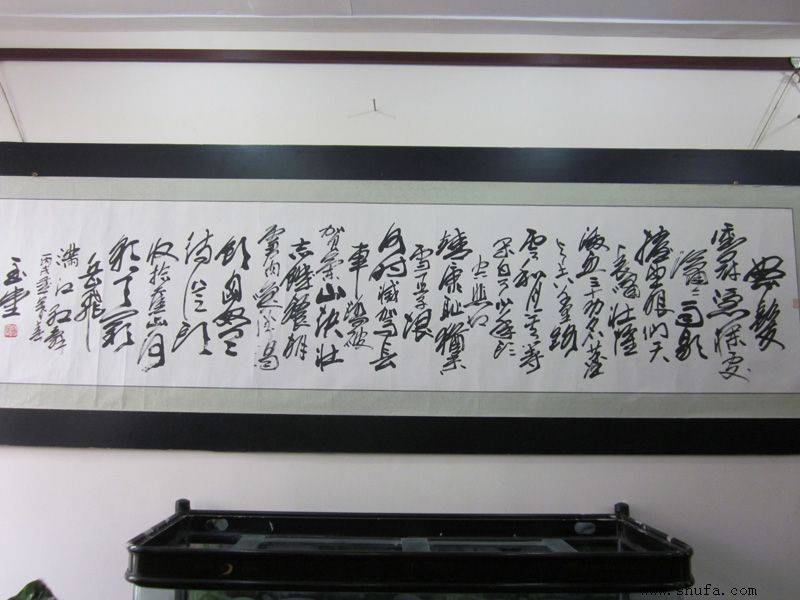 怒髮
衝冠憑欄處
瀟瀟雨歇
擡望眼仰天
長嘯壯懷
激烈三十功名塵
土八千里路
雲和月莫等
閒白了少年頭
空悲切
靖康恥猶未
雪臣子恨
何時滅駕長
車踏破
賀蘭山缺壯
志饑餐胡
虜肉笑談渴
飲匈奴血
待從頭
收拾舊山河
朝天闕
岳飛
滿江紅
丙戌
玉堂
www.shufa.com